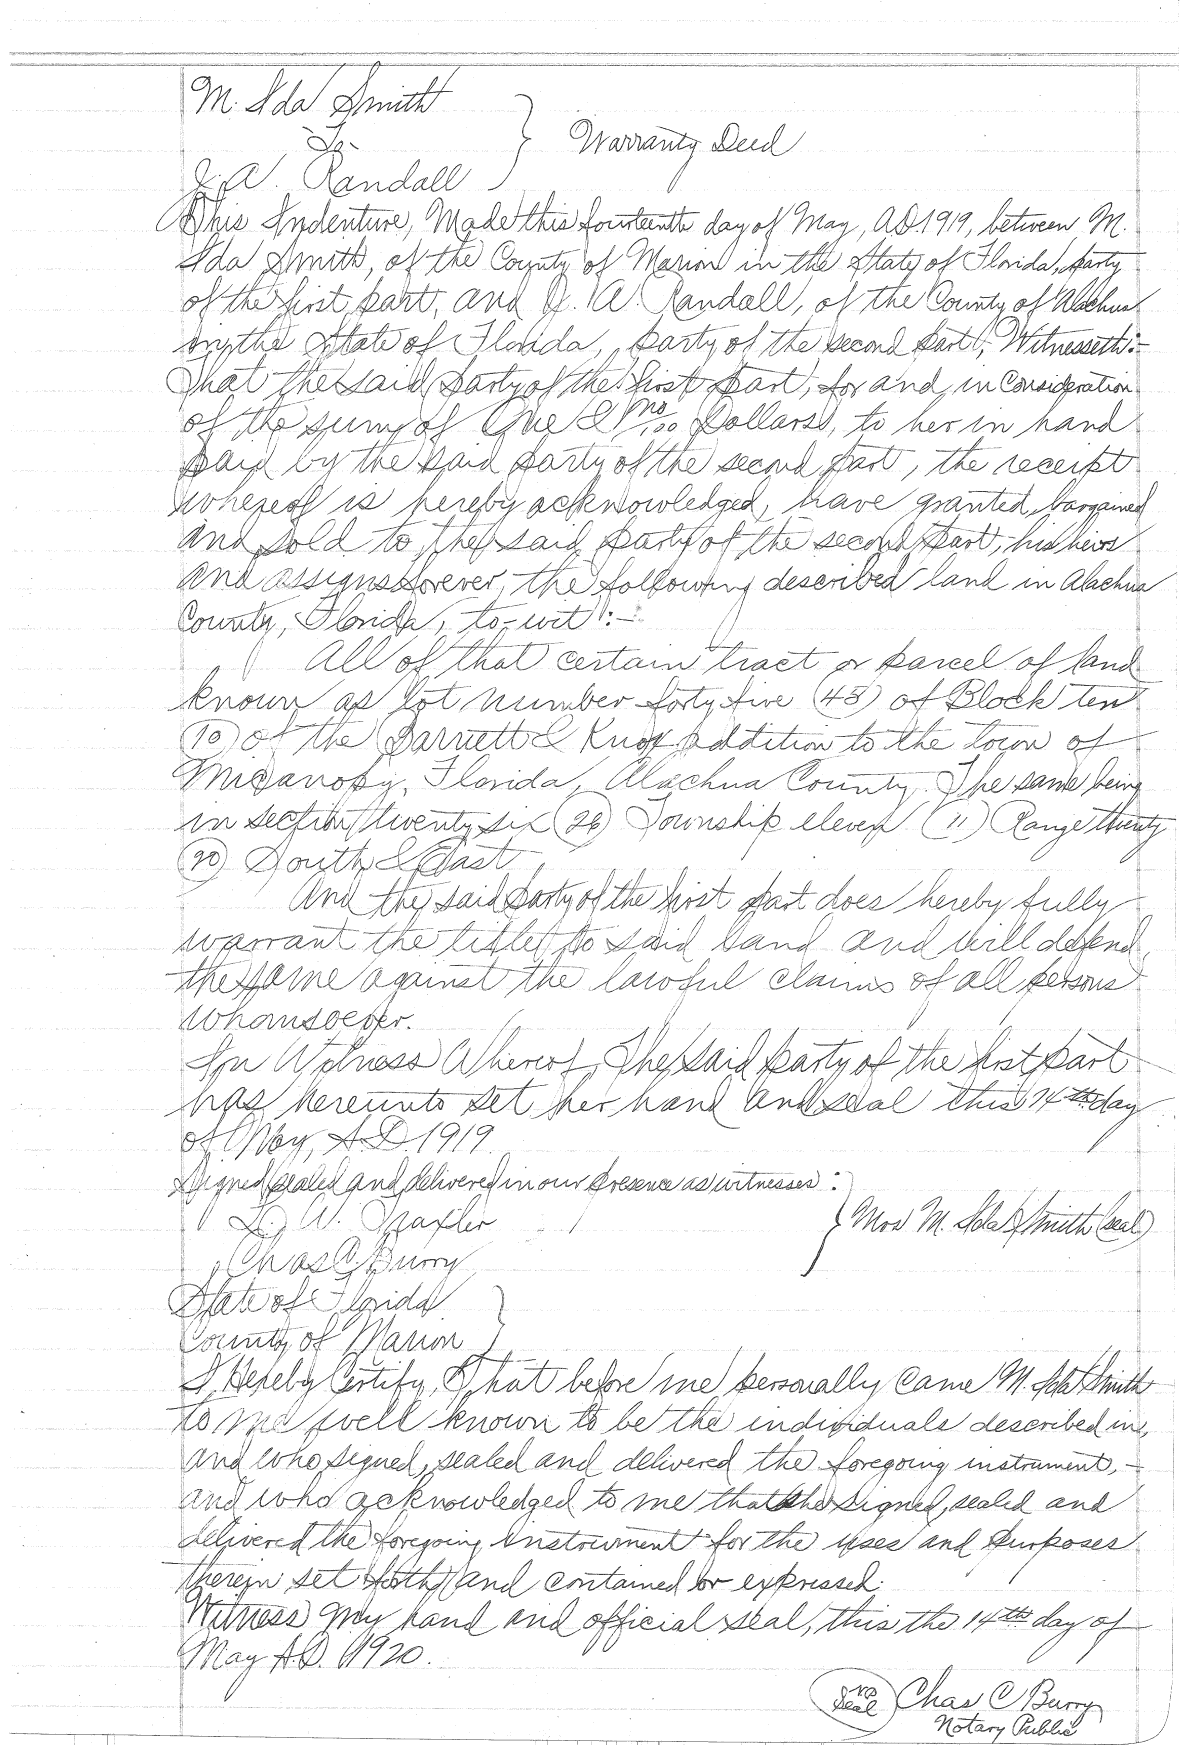 M. Ida Smith
To-
Warranty Deed
J. A. Randall
This Indenture, Made this fourteenth day of May, A.D. 1919, between M.
Ida Smith, of the County of Marion in the State of Florida, party
of the first part, and J. A. Randall, of the County of Alachua
in the State of Florida, party of the second part, Witnesseth:-
That the said party of the first part, for and in Consideration
of the sum of One & no/100 Dollars, to her in hand
paid by the said party of the second part, the receipt
whereof is hereby acknowledged, have granted, bargained
and sold to the said party of the second part, his heirs
and assigns forever, the following described land in Alachua
County, Florida, to-wit:-
All of that certain tract or parcel of land
known as lot number forty five (45) of Block ten
(10) of the Barnett & Knox addition to the town of
Micanopy, Florida, Alachua County. The same being
in section twenty six (26) Township eleven (11) Range twenty
(20) South & East.
And the said party of the first part does hereby fully
warrant the title to said land and will defend
the same against the lawful claims of all persons
whomsoever.
In Witness Whereof, The said party of the first part
has hereunto set her hand and seal this 14th day
of May, A.D. 1919.
Signed, sealed and delivered in our presence as witnesses:
L. W. Traxler
Mrs M. Ida Smith (seal)
Chas C Burry
State of Florida
County of Marion
I Hereby Certify, That before me personally came M. Ida Smith
to me well known to be the individuals described in,
and who signed, sealed and delivered the foregoing instrument,-
and who acknowledged to me that she signed, sealed and
delivered the foregoing instrument for the uses and purposes
therein set forth and contained or expressed.
Witness my hand and official seal, this the 14th day of
May A.D. 1920.
NP Seal Chas C Burry
Notary Public